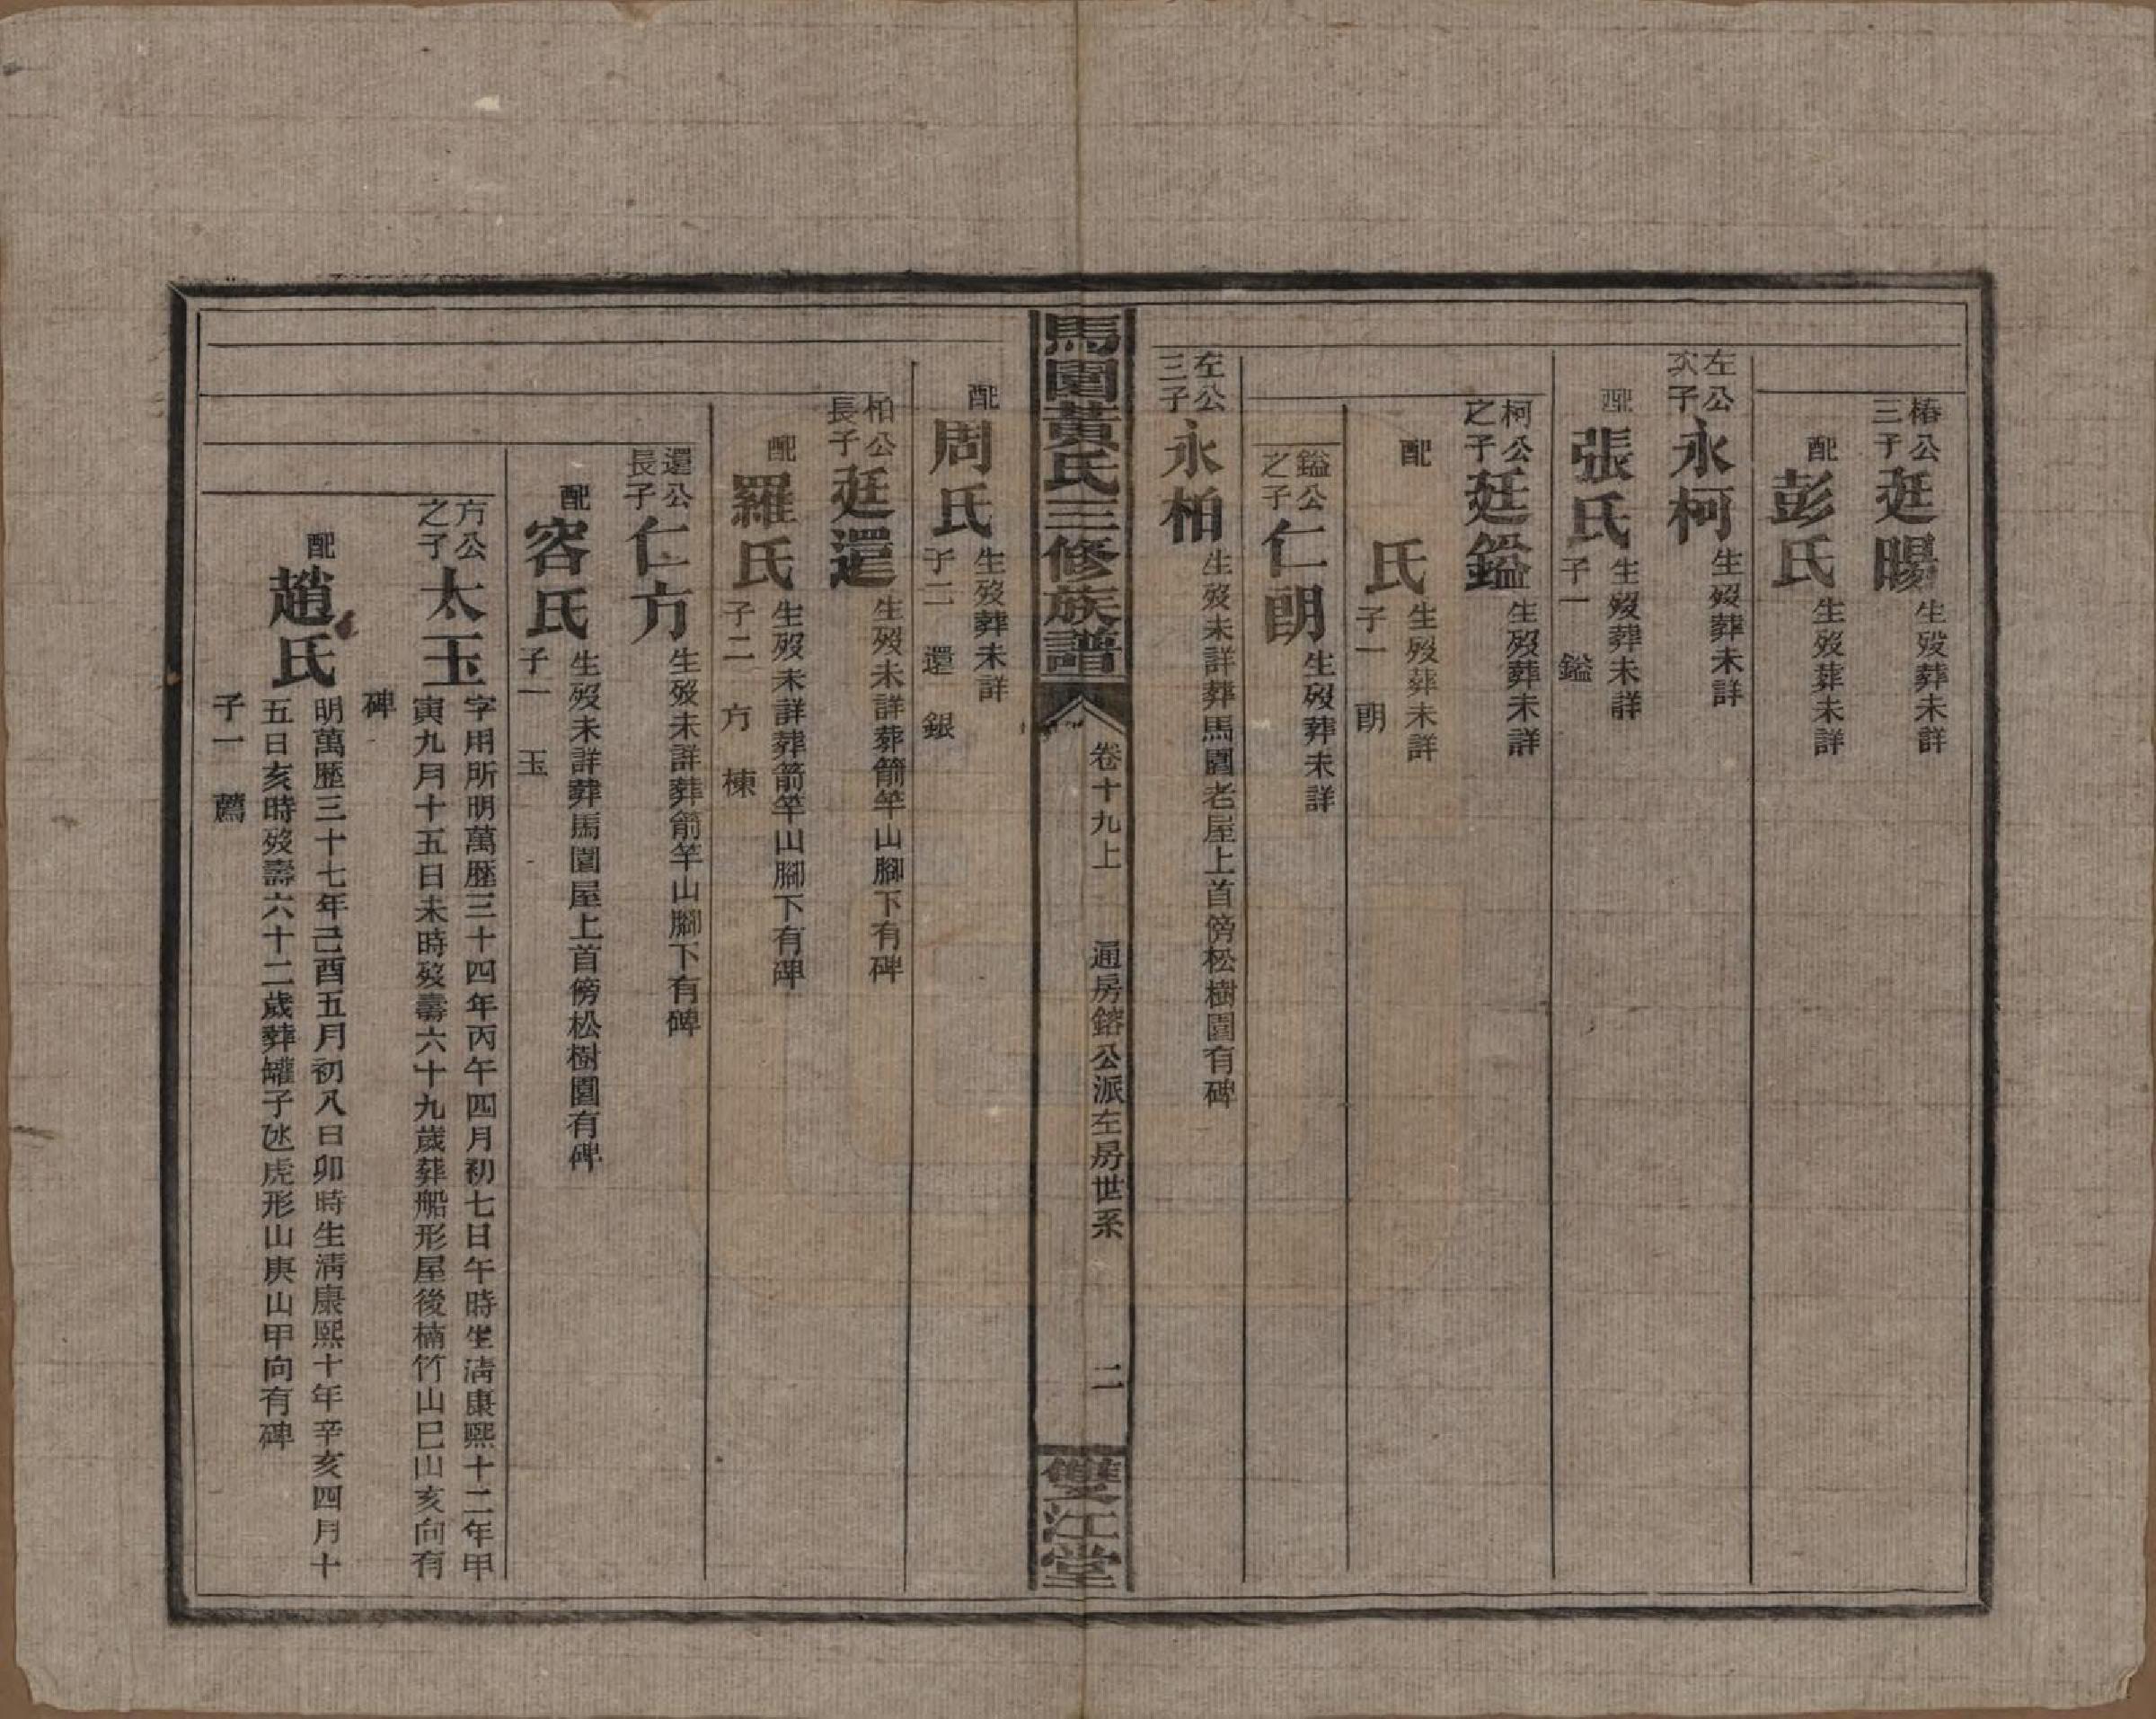 椿公
三子
廷暘
生歿葬未詳
配
彭氏
生歿葬未詳
左公
次子
永柯
生歿葬未詳
配
張氏
生歿葬未詳
子一　鎰
柯公
之子
廷鎰
生歿葬未詳
配
氏
生歿葬未詳
子一　朗
鎰公
之子
仁朗
生歿葬未詳
左公
三子
永柏
生歿未詳葬馬園老屋上首傍松樹園有碑
馬園黃氏三修族譜
卷十九上
通房鎔公派左房世系
二
雙江堂
配
周氏
生歿葬未詳
子二　還　銀
柏公
長子
廷還
生歿未詳葬箭竿山腳下有碑
配
羅氏
生歿未詳葬箭竿山腳下有碑
子二　方　棟
還公
長子
仁方
生歿未詳葬箭竿山腳下有碑
配
容氏
生歿未詳葬馬園屋上首傍松樹園有碑
子一　玉
方公
之子
太玉
字用所明萬歷三十四年丙午四月初七日午時生清康熙十二年甲
寅九月十五日未時歿壽六十九歲葬船形屋後楠竹山巳山亥向有
碑
配
趙氏
明萬歷三十七年己酉五月初八日卯時生清康熙十年辛亥四月十
五日亥時歿壽六十二歲葬罐子氹虎形山庚山甲向有碑
子一　薦